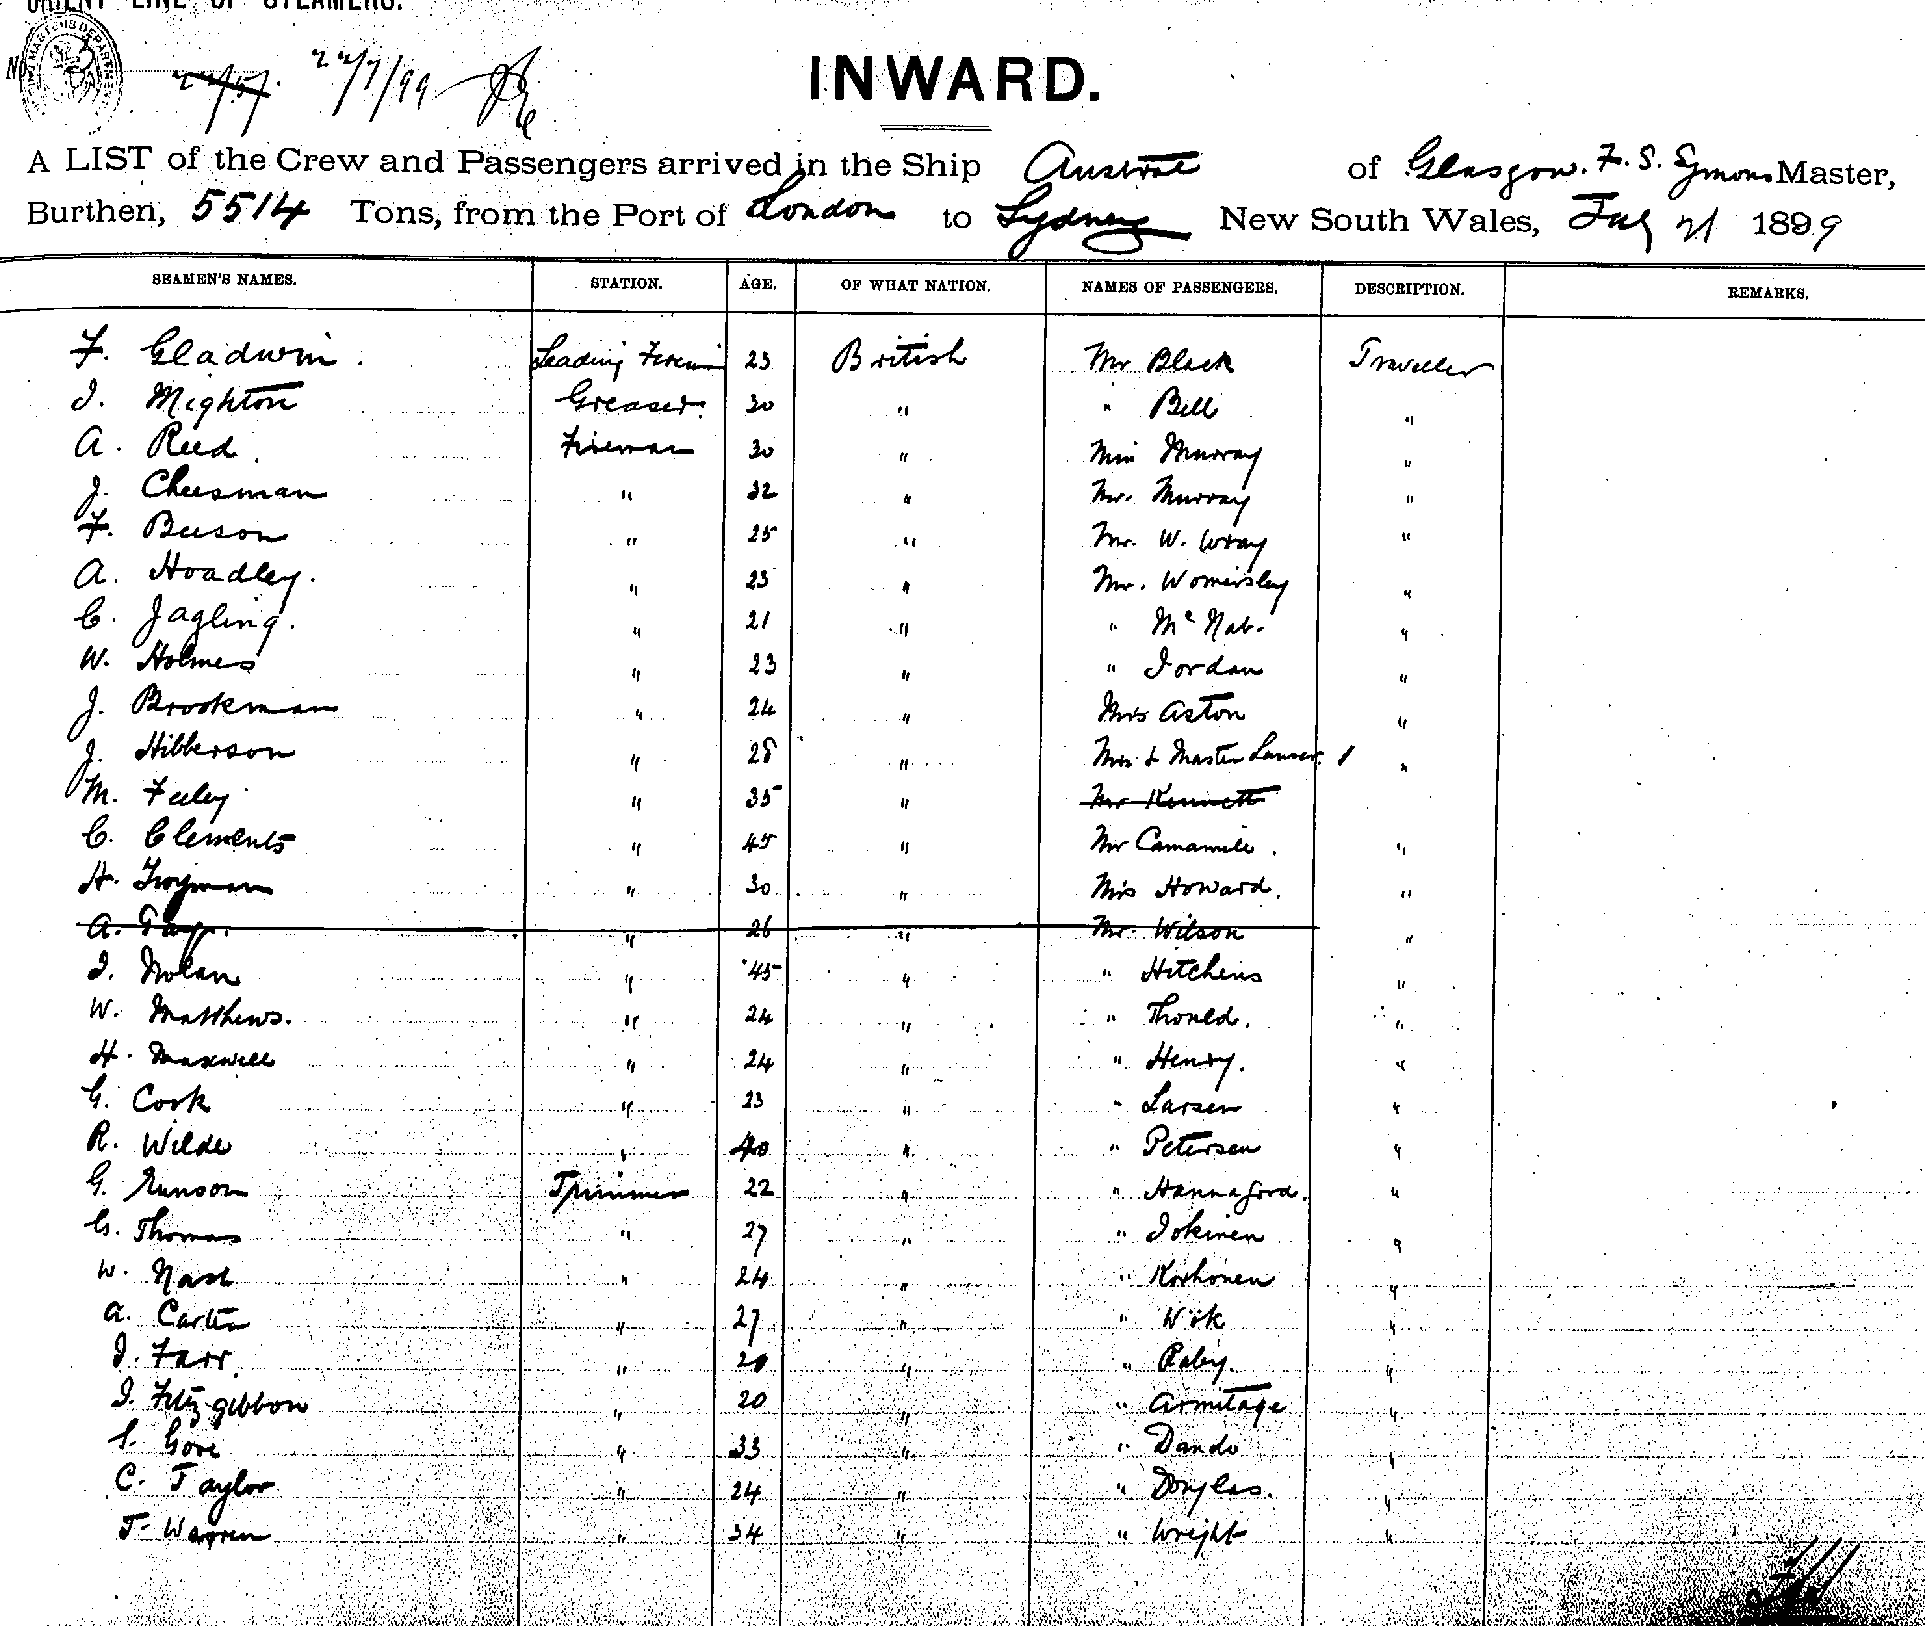 ORIENT LINE OF STEAMERS.
No. 3
22/7/99
INWARD.
A LIST of the Crew and Passengers arrived in the Ship Austral of Glasgow. F. S. Symons Master,
Burthen, 5514 Tons, from the Port of London to Sydney New South Wales, July 21 1899
SEAMEN'S NAMES. STATION. AGE. OF WHAT NATION. NAMES OF PASSENGERS. DESCRIPTION. REMARKS.
F. Gladwin. Leading 23 British Mr Black Traveller
J. Mighton Greaser. 30 " " Bell "
A. Reed. Fireman 30 " Miss Murray "
J. Cheesman " 32 " Mr. Murray "
F. Beeson " 25 " Mr. W. Wray "
A. Hoadley. " 23 " Mr. Womersley "
C. Jagling. " 21 " " McNab. "
W. Holmes " 23 " " Jordan "
J. Brookman " 24 " Mrs Aston "
J. Hibberson " 28 " & Master "
M. Feeley " 35 " Mr Kennett
C. Clements " 45 " Mr Camamile. "
H. " 30 " Howard. "
A. " 26 " Mr. Wilson "
J. Nolan " 45 " " Hitchens "
W. Matthews. " 24 " " "
H. Maxwell " 24 " " Henry. "
G. Cook " 23 " " Larsen "
R. Wilde " 40 " " Petersen "
G. Trimmer 22 " " Hannaford. "
G. Thomas " 27 " " Jokinen "
W. Nash " 24 " " Korhonen "
A. Carter " 27 " " Wik "
J. Farr. " 20 " " Raby. "
J. Fitzgibbon " 20 " " Armitage "
Gore " 33 " " Dando "
C. Taylor " 24 " " Douglas. "
T. Warren " 34 " " Wright "